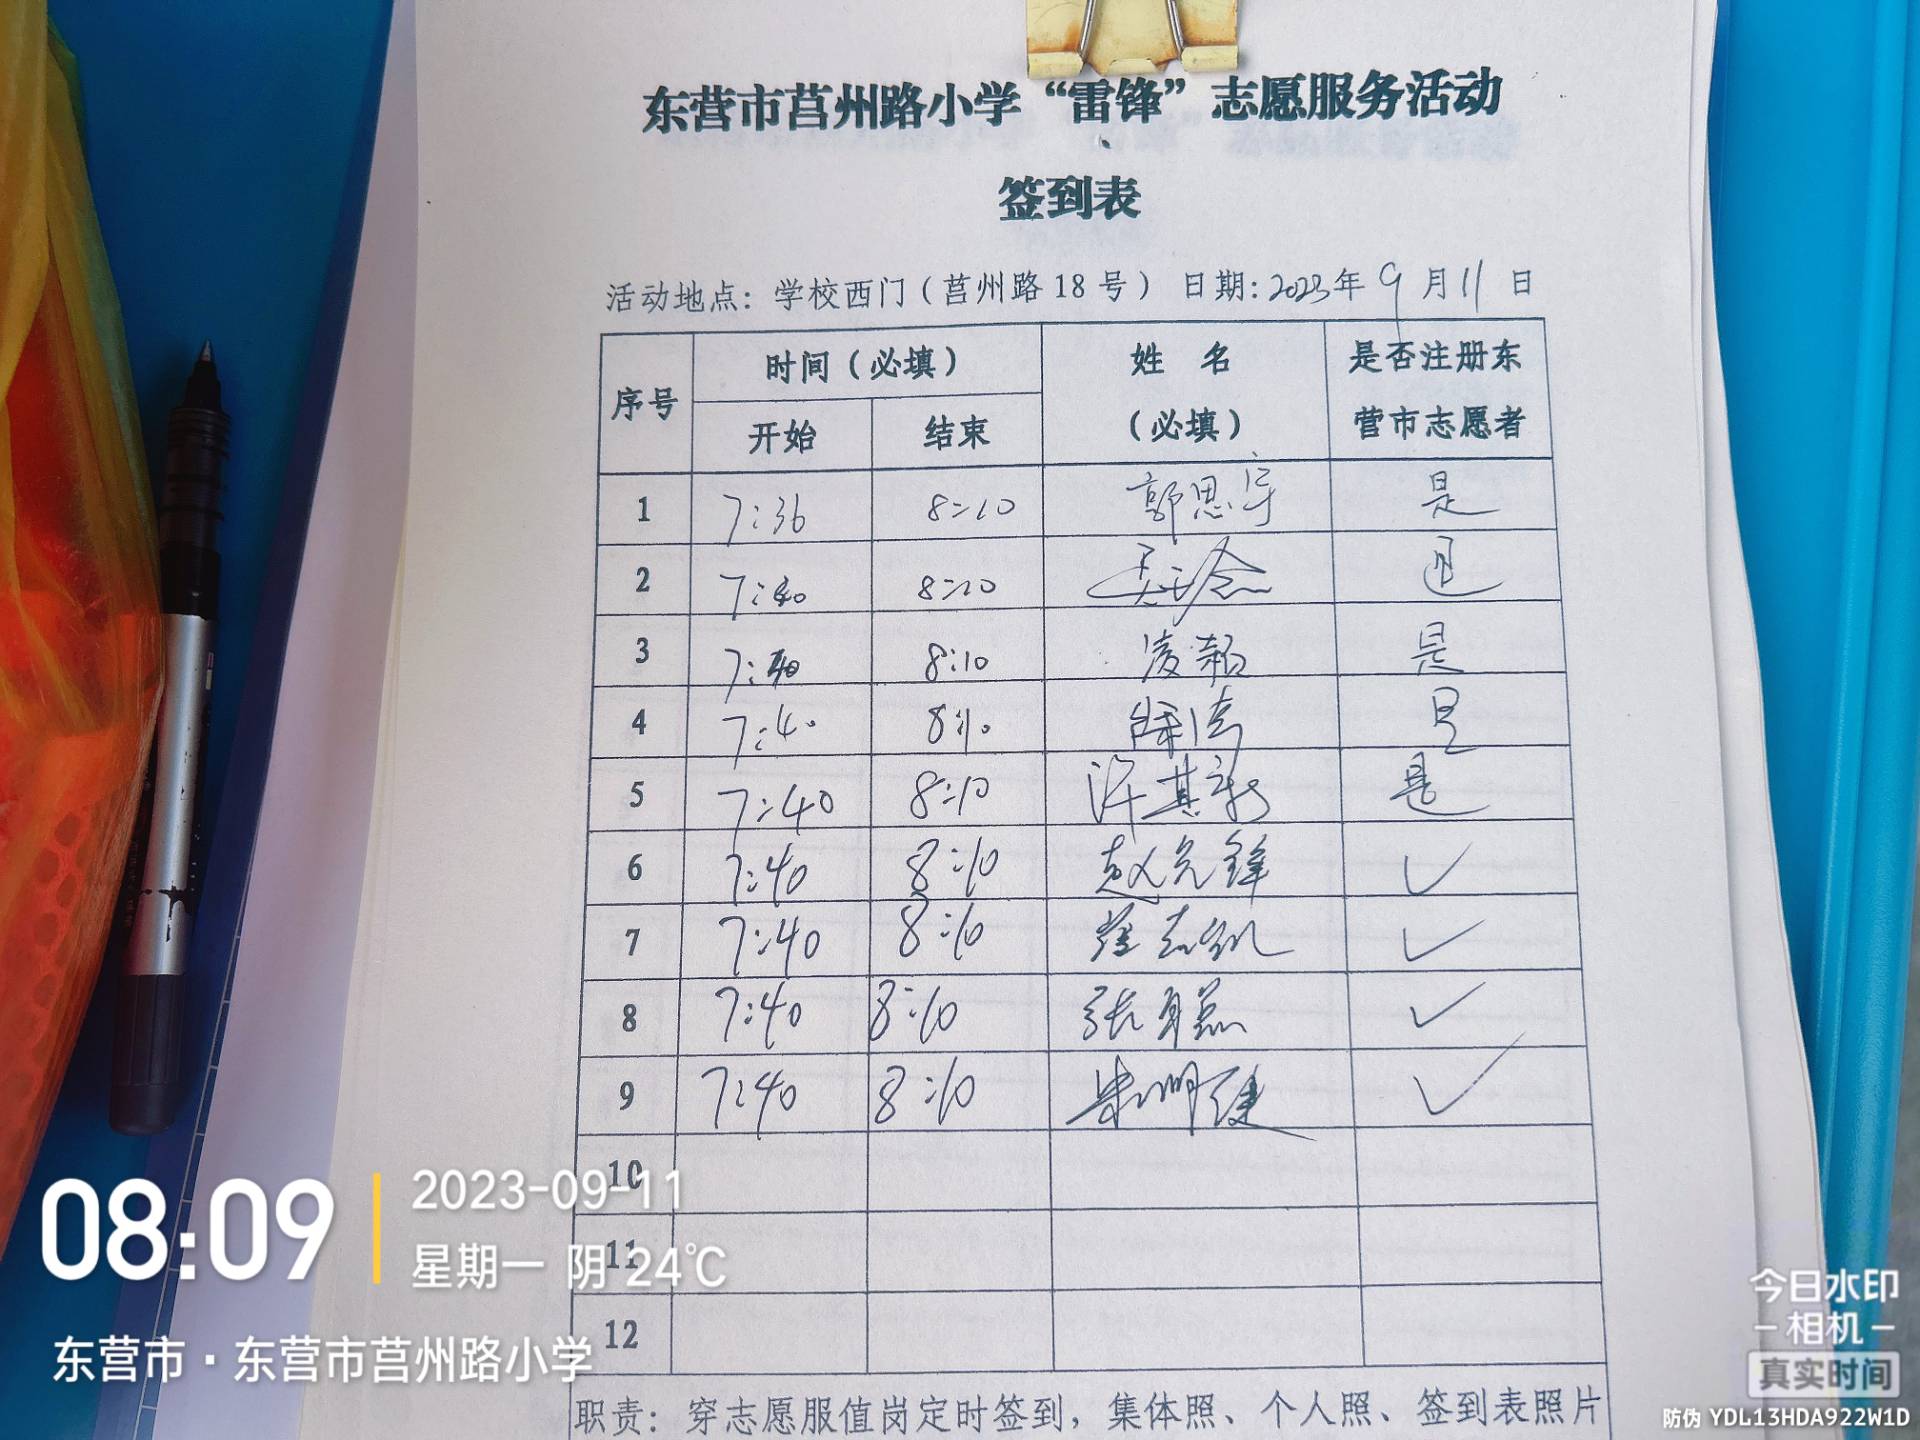 东营市莒州路小学“雷锋”志愿服务活动
签到表
活动地点：学校西门（莒州路18号） 日期:2023年9月11日
序号 时间（必填） 姓 名（必填） 是否注册东营市志愿者
开始 结束
1 7:36 8:10 郭思宇 是
2 7:40 8:10 是
3 7:40 8:10 凌颖 是
4 7:40 8:10 是
5 7:40 8:10 许其 是
6 7:40 8:10 赵先锋 ✓
7 7:40 8:10 ✓
8 7:40 8:10 张 ✓
9 7:40 8:10 ✓
10
11
12
职责：穿志愿服值岗定时签到，集体照、个人照、签到表照片
08:09
2023-09-11
星期一 阴 24℃
东营市·东营市莒州路小学
今日水印
-相机-
真实时间
防伪 YDL13HDA922W1D